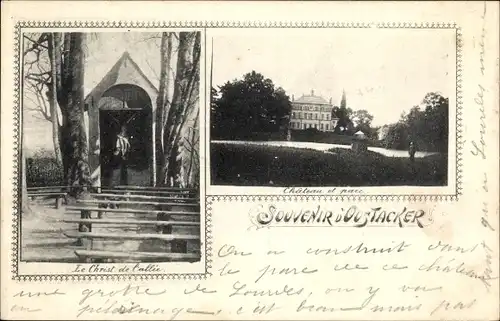 Le Christ de Callée
Château et parc
SOUVENIR D'OOSTACKER
On a construit dans
le parc de ce château
une grotte de Lourdes, on y va
en pélerinage, c'est beau mais pas
Lourdes